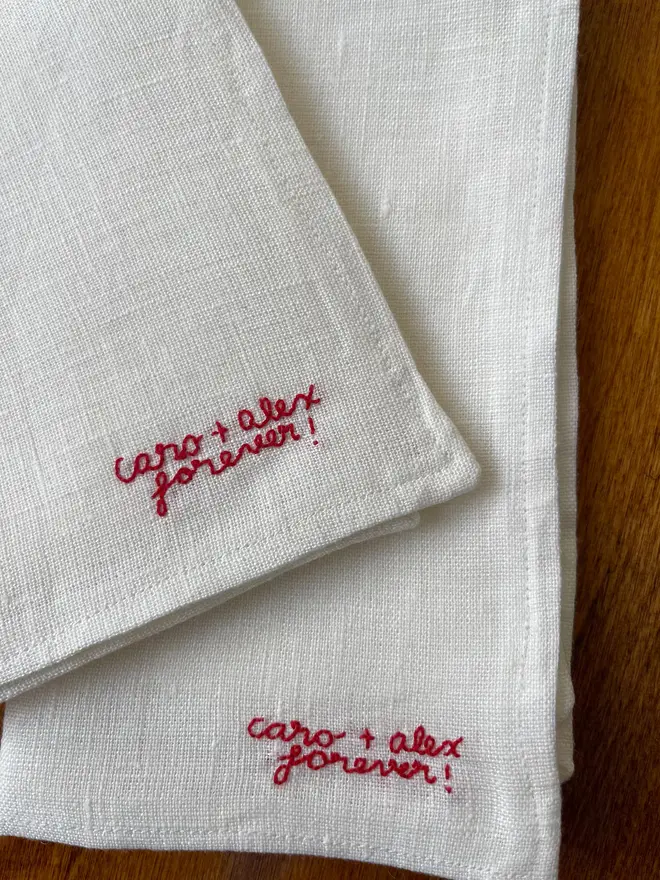 caro + alex
forever!
caro + alex
forever!